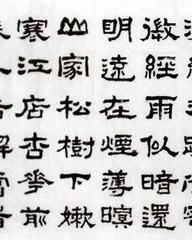 微經雨似暗還
明遠在煙薄暝
山家松樹下嫩
寒江店杏花前